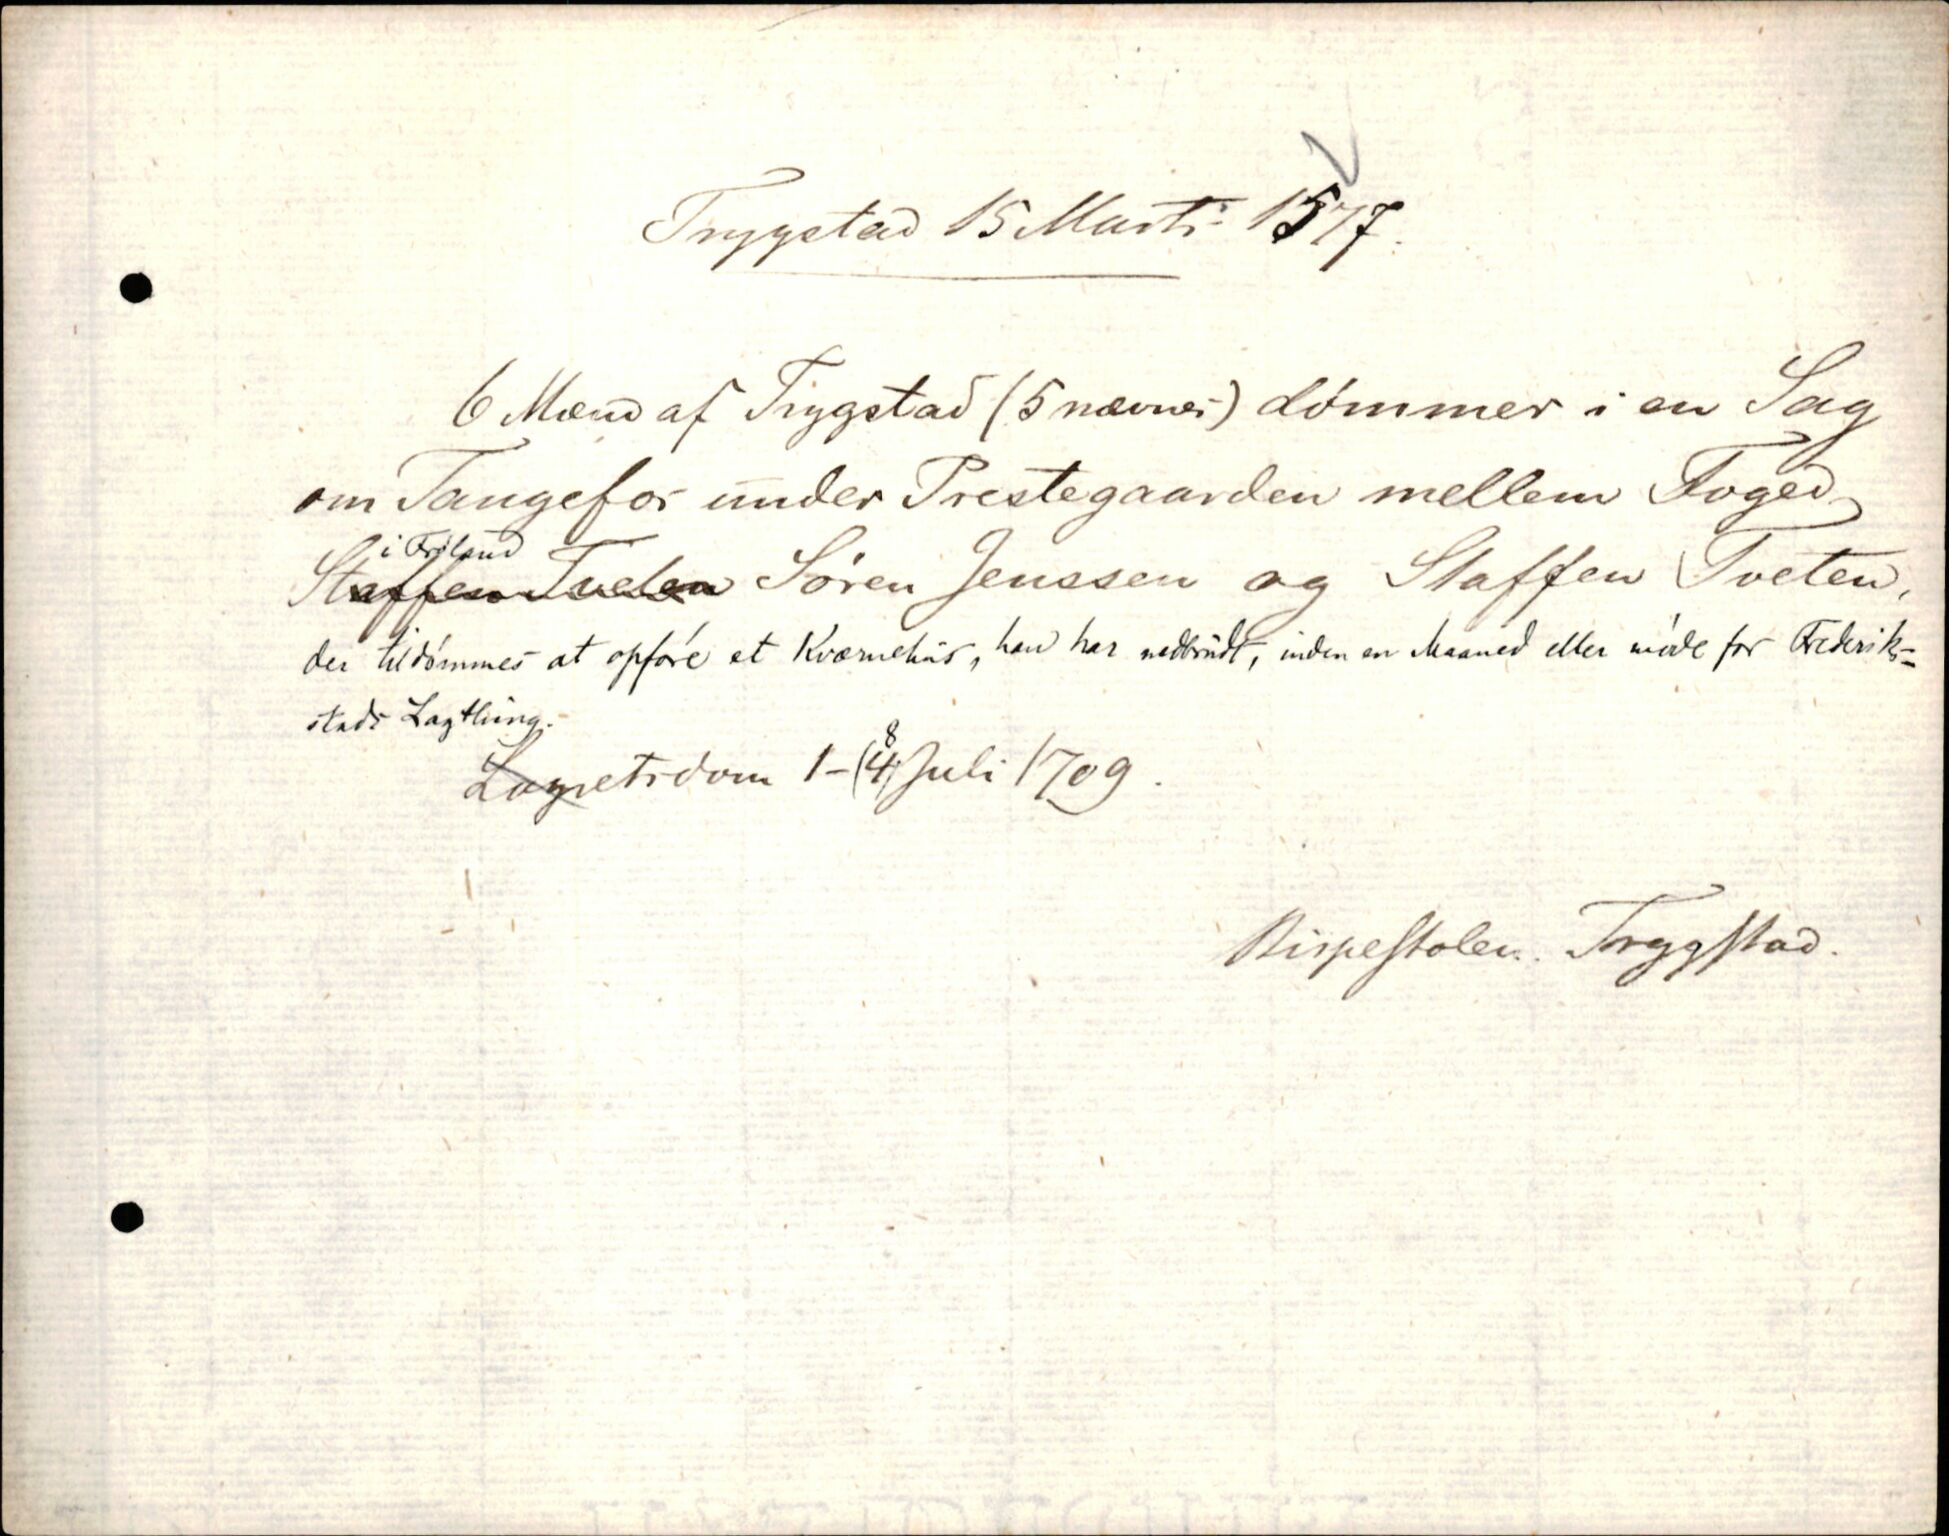 Trygstad 15 Marti 1577.
6 Mænd af Trygstad (5 nævnes) dømmer i en Sag
om Tangefos under Prestegaarden mellem Foged
i Fröland
Staffen Tveten Sören Jenssen og Staffen Tveten,
der tildømmes at opføre et Kværnehus, han har nedbrudt, inden en Maaned eller møde for Frederik-
stads Lagthing.
8
Lagretsdom 1-(4) Juli 1709.
Bispestolen. Trygstad.